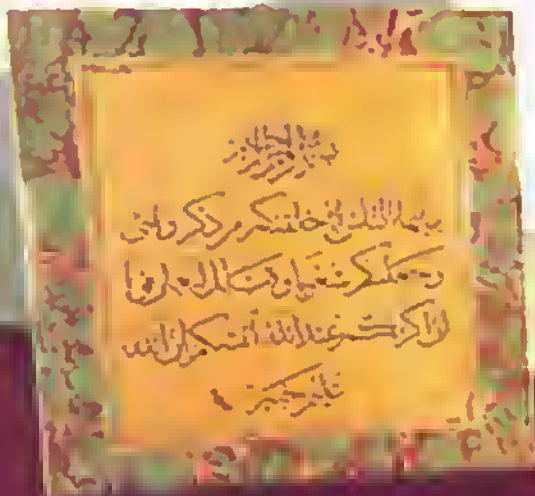 بسم الله الرحمن الرحيم
يا أيها الناس إنا خلقناكم من ذكر وأنثى
وجعلناكم شعوبا وقبائل لتعارفوا
إن أكرمكم عند الله أتقاكم إن الله
عليم خبير